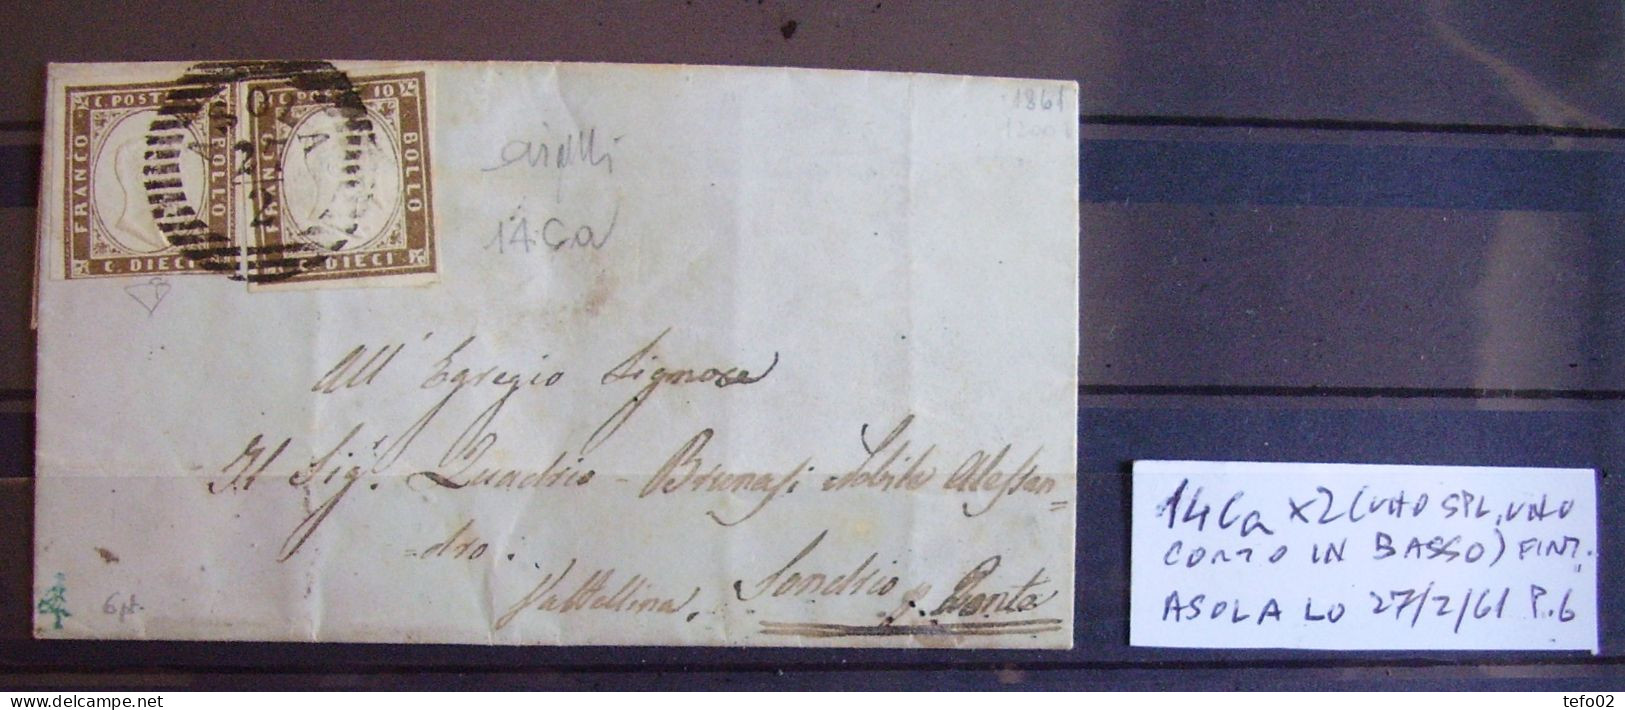 C. POST
FRANCO
BOLLO
C. DIECI
C. POST 10
FRANCO
BOLLO
C. DIECI
ASOLA
27
2
1861
1200
14Ca
All' Egregio Signore
Il Sig.r Quadrio - Brunasi Nobile Alessan=
=dro.
Valtellina. Sondrio p. Ponte
6 pt.
14Ca x2 (UNO SPL, UNO
CORTO IN BASSO) FINT.
ASOLA LO 27/2/61 P.6
tefo02